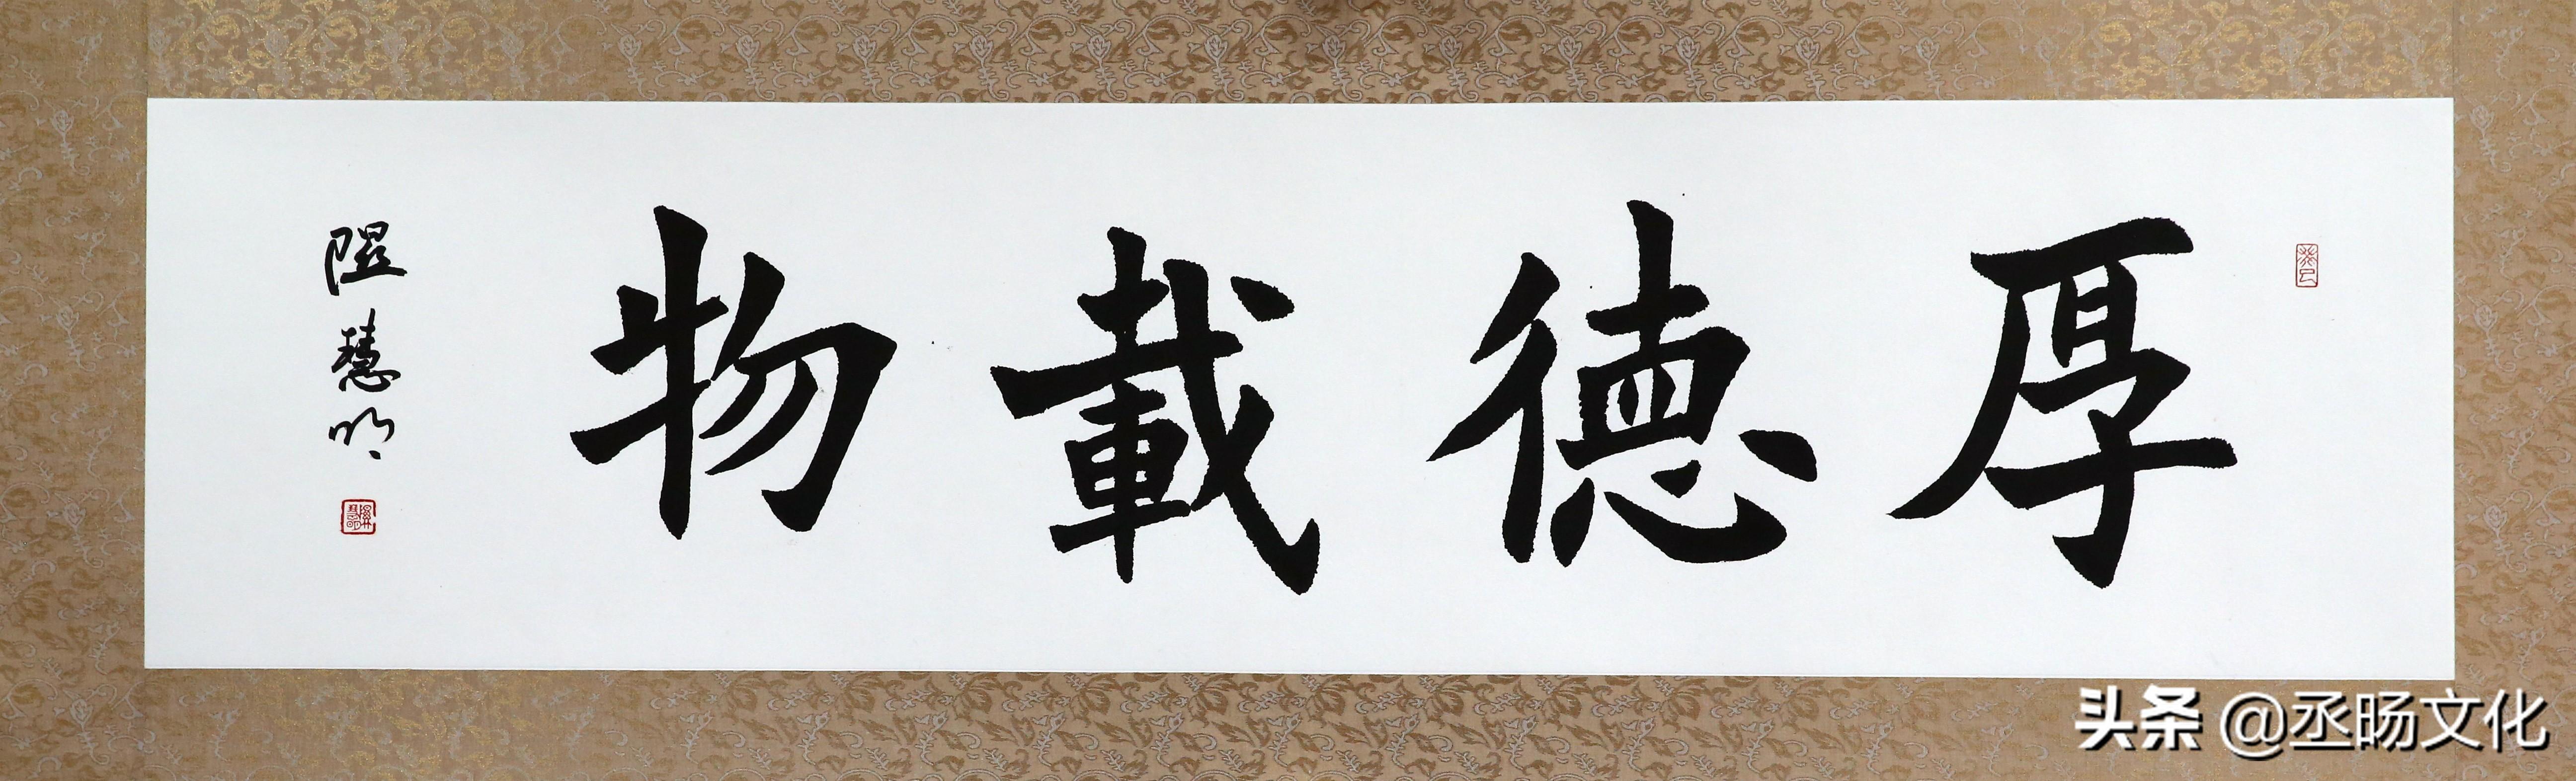 厚德載物
隰慧明
癸巳
头条 @丞旸文化